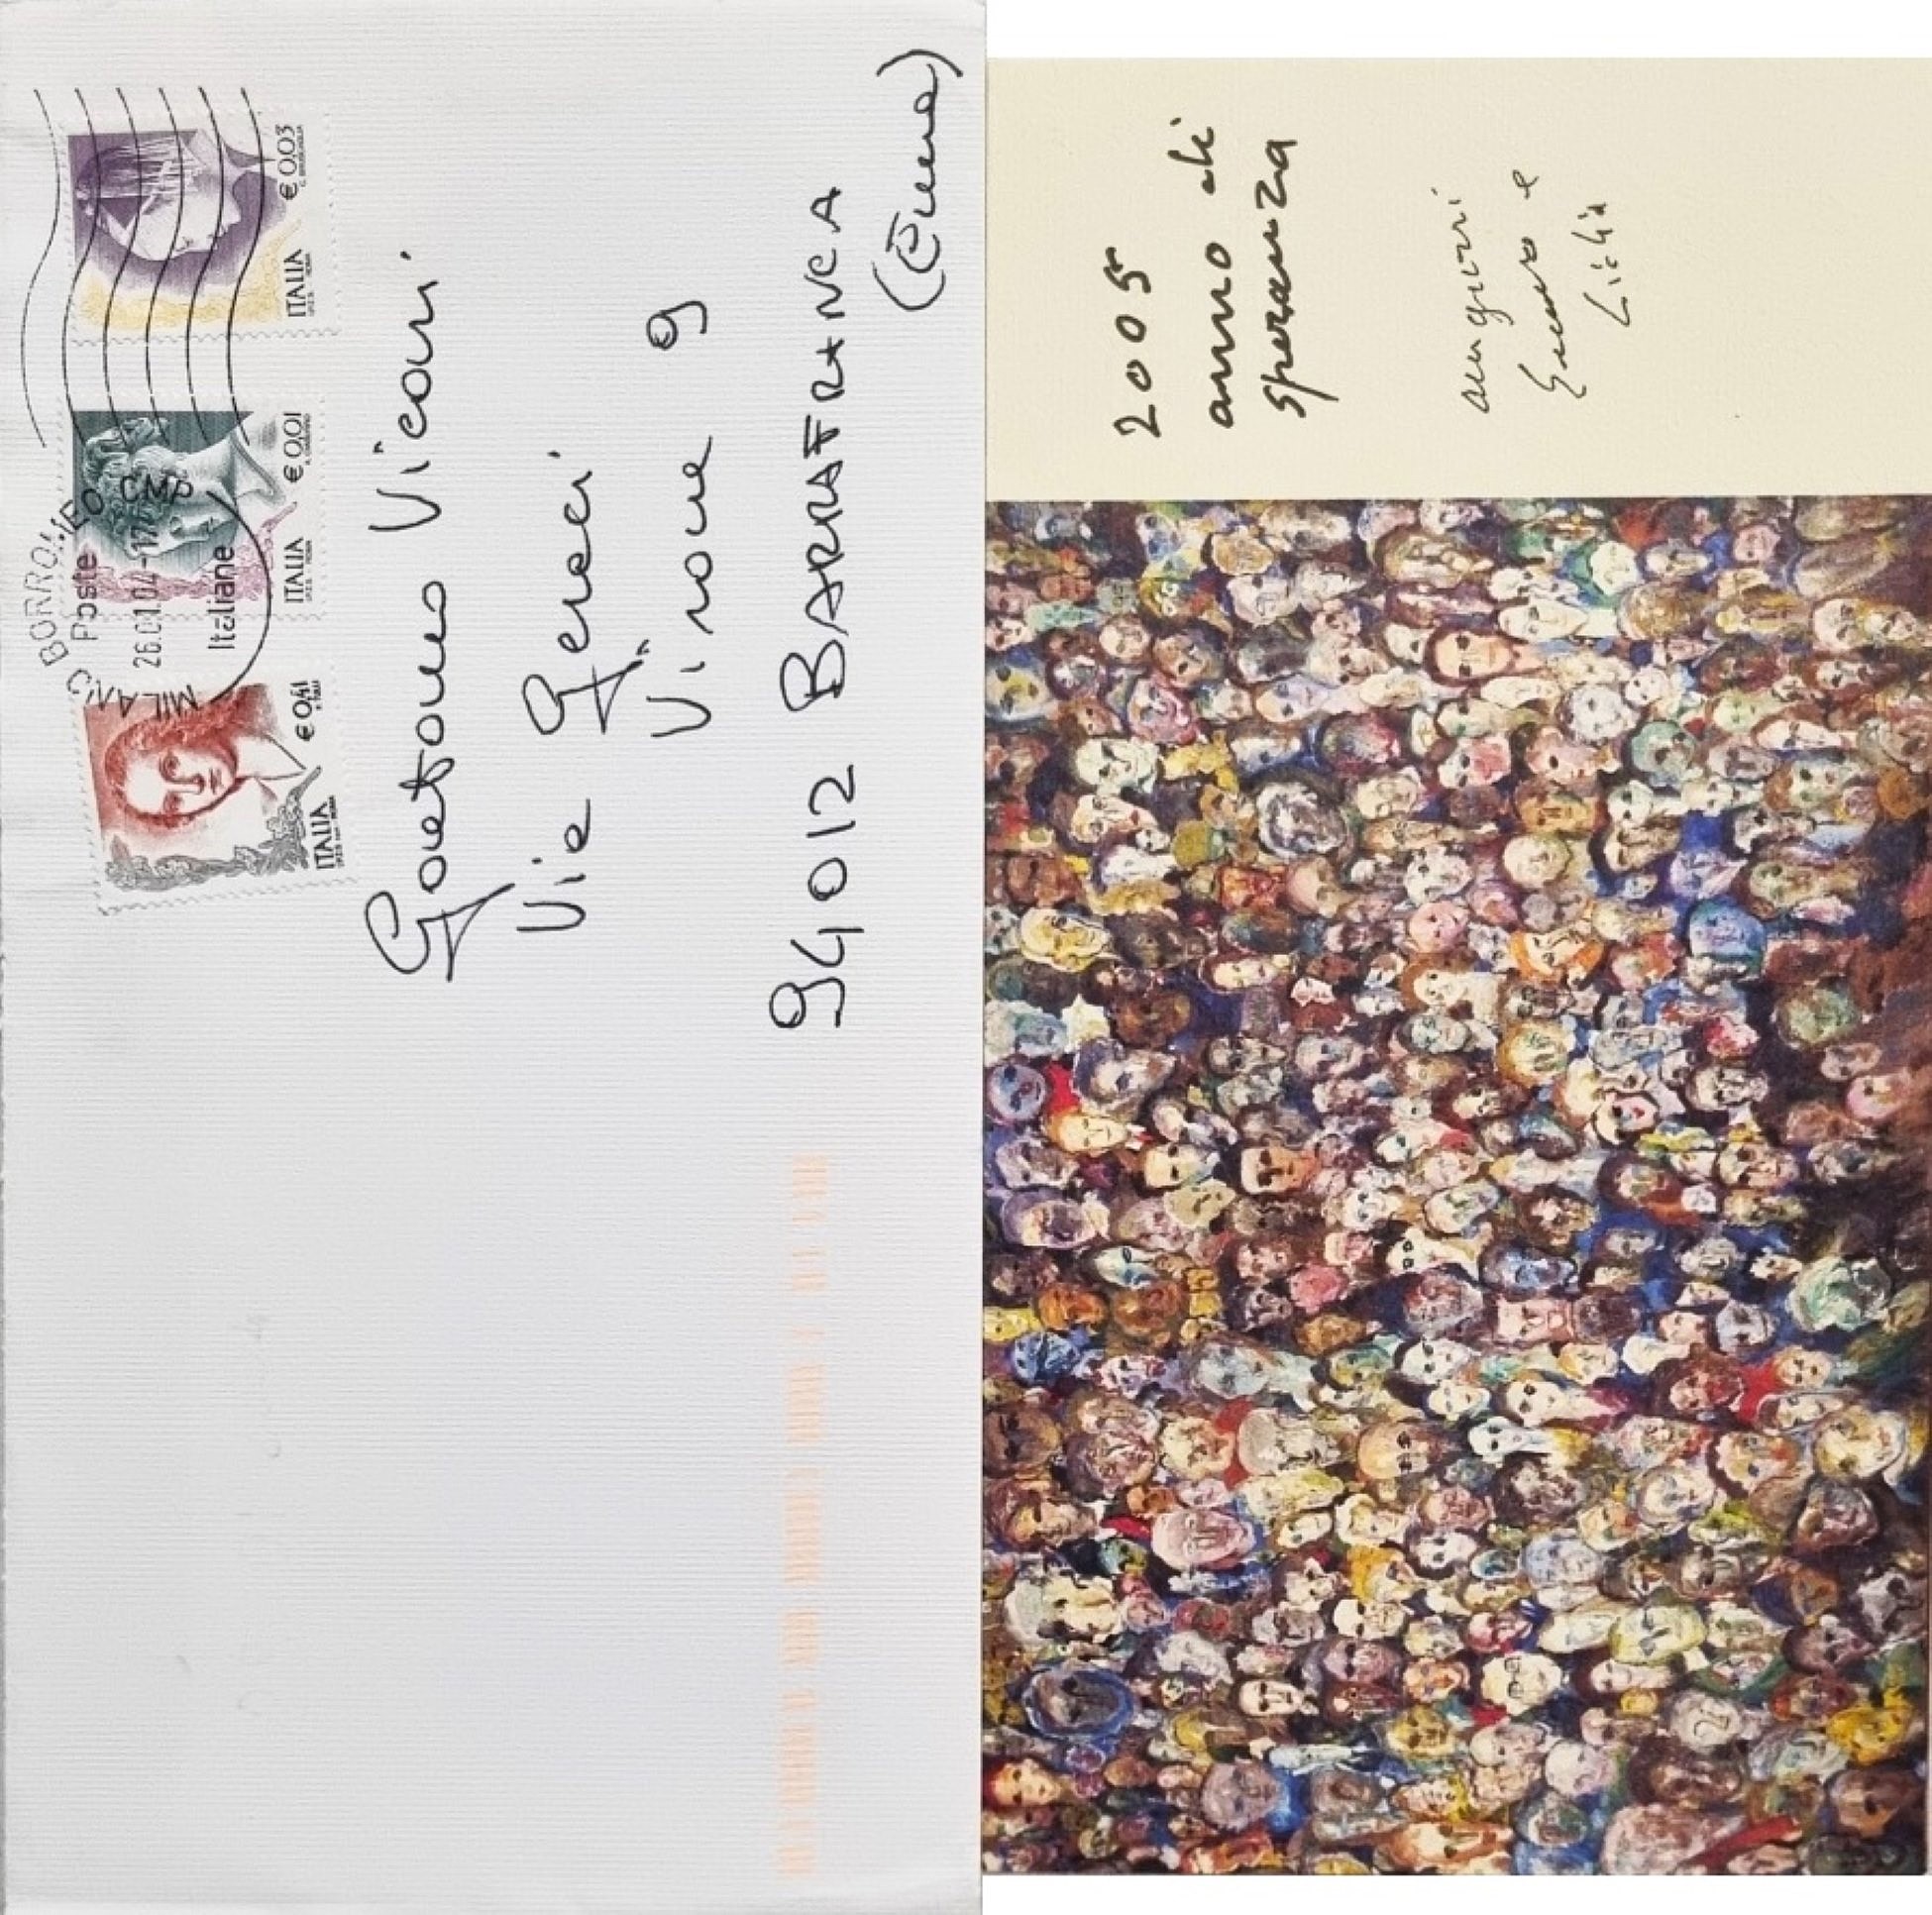 € 0,41
ITALIA
€ 0,01
ITALIA
€ 0,03
ITALIA
MILANO BORROMEO CMP
Poste
26.01.04-17
Italiane
Gaetano Vicari
Vie
Vinone 9
94012 BARRAFRANCA
(Enna)
2005
anno di
speranza
auguri
e
Licia